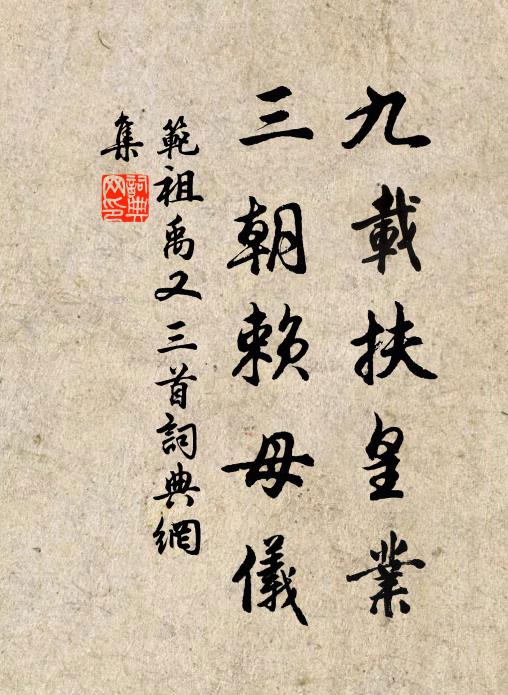 九載扶皇業
三朝賴母儀
範祖禹又三首詞典網
集
詞典
网印